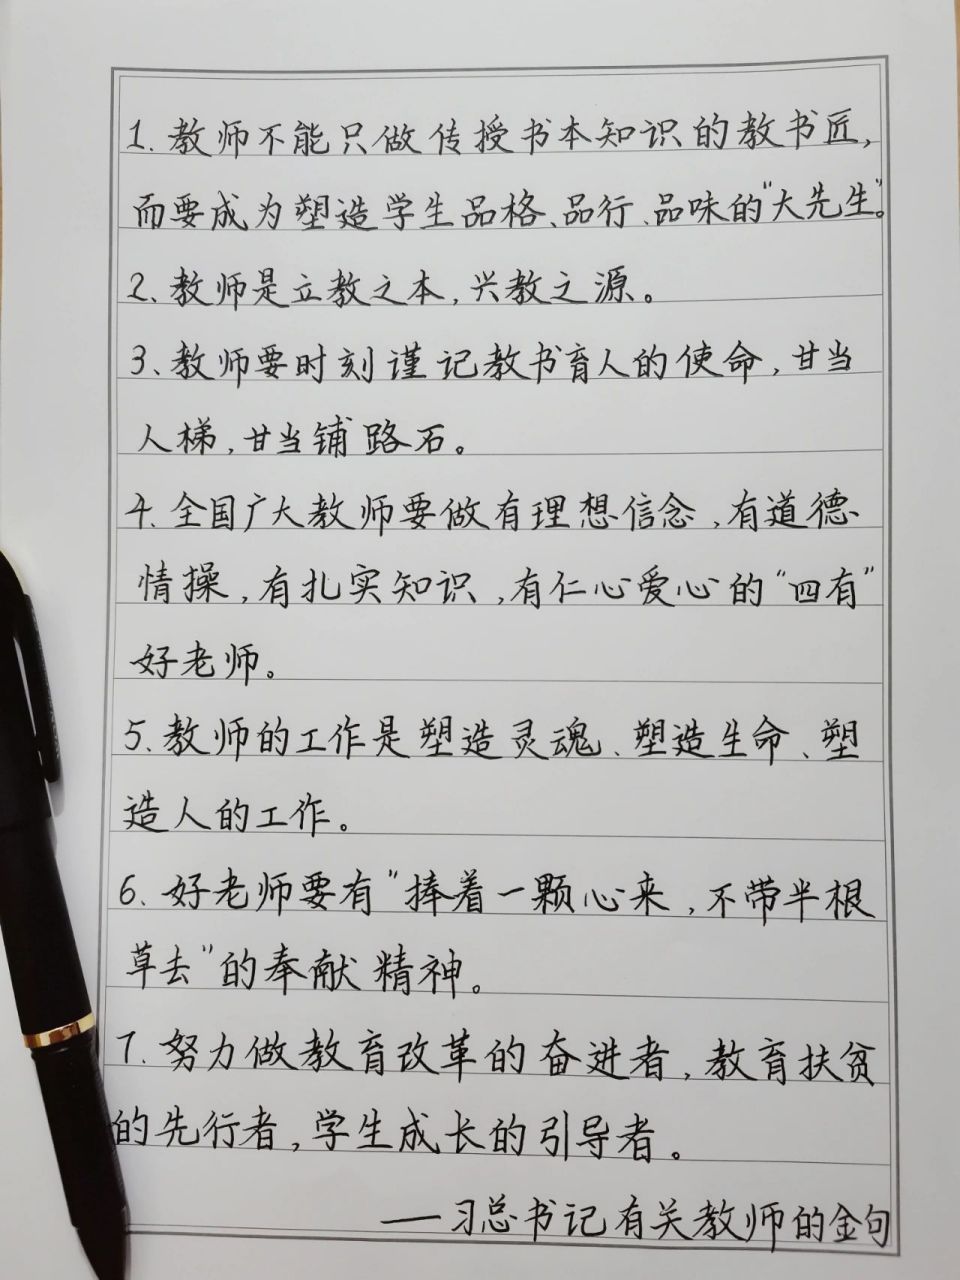 1.教师不能只做传授书本知识的教书匠,
而要成为塑造学生品格、品行、品味的"大先生"。
2、教师是立教之本,兴教之源。
3、教师要时刻谨记教书育人的使命,甘当
人梯,甘当铺路石。
4.全国广大教师要做有理想信念,有道德
情操,有扎实知识,有仁心爱心的"四有"
好老师。
5.教师的工作是塑造灵魂、塑造生命、塑
造人的工作。
6.好老师要有"捧着一颗心来,不带半根
草去"的奉献精神。
7.努力做教育改革的奋进者,教育扶贫
的先行者,学生成长的引导者。
——习总书记有关教师的金句